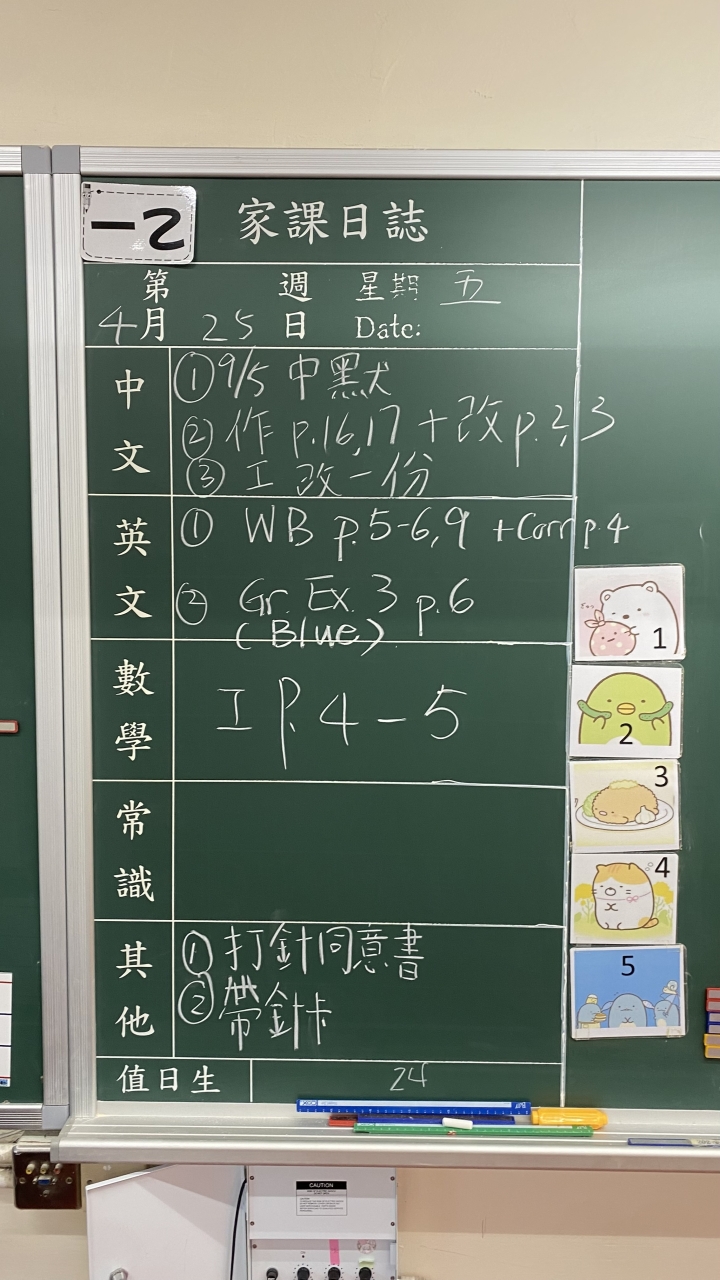 一乙
家課日誌
第 週 星期 五
4月 25 日 Date:
中文
① 9/5 中默
② 作 p.16,17 + 改 p.2,3
③ 工 改一份
英文
① WB p.5-6,9 +Corr p.4
② Gr. Ex. 3 p.6
(Blue)
數學
工 P.4-5
常識
其他
① 打針同意書
② 帶針卡
值日生 24
1
2
3
4
5
CAUTION